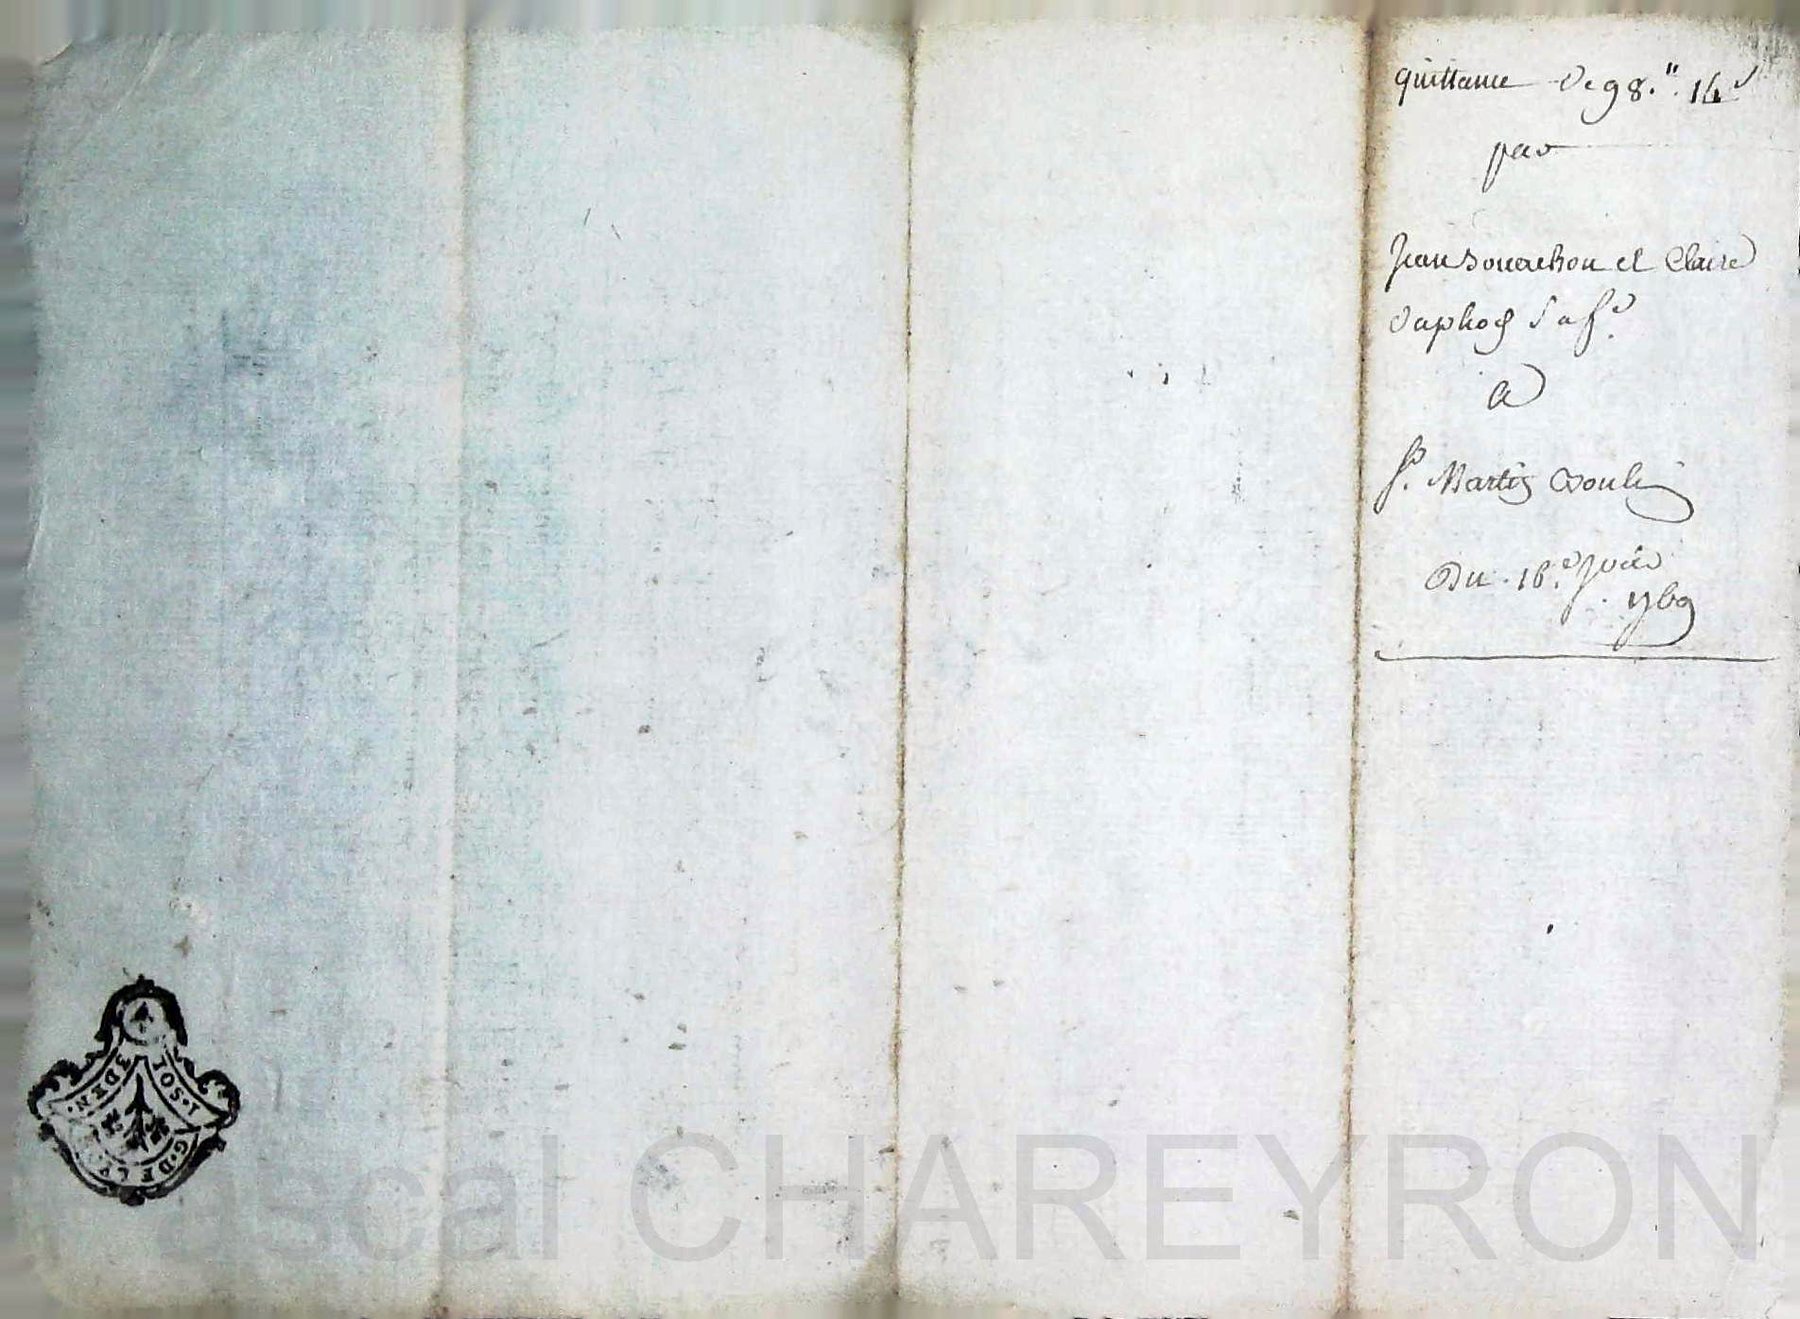 quittance De 98.ʺ 14ˢ
par
Jean Souachon et Claire
Daphog Sa fᵉ.
a
Sʳ. Martin Doulin
Du. 16.ᵉ Juin
1769
1·SOL
3 DEN·
G·DE LYON
Pascal CHAREYRON